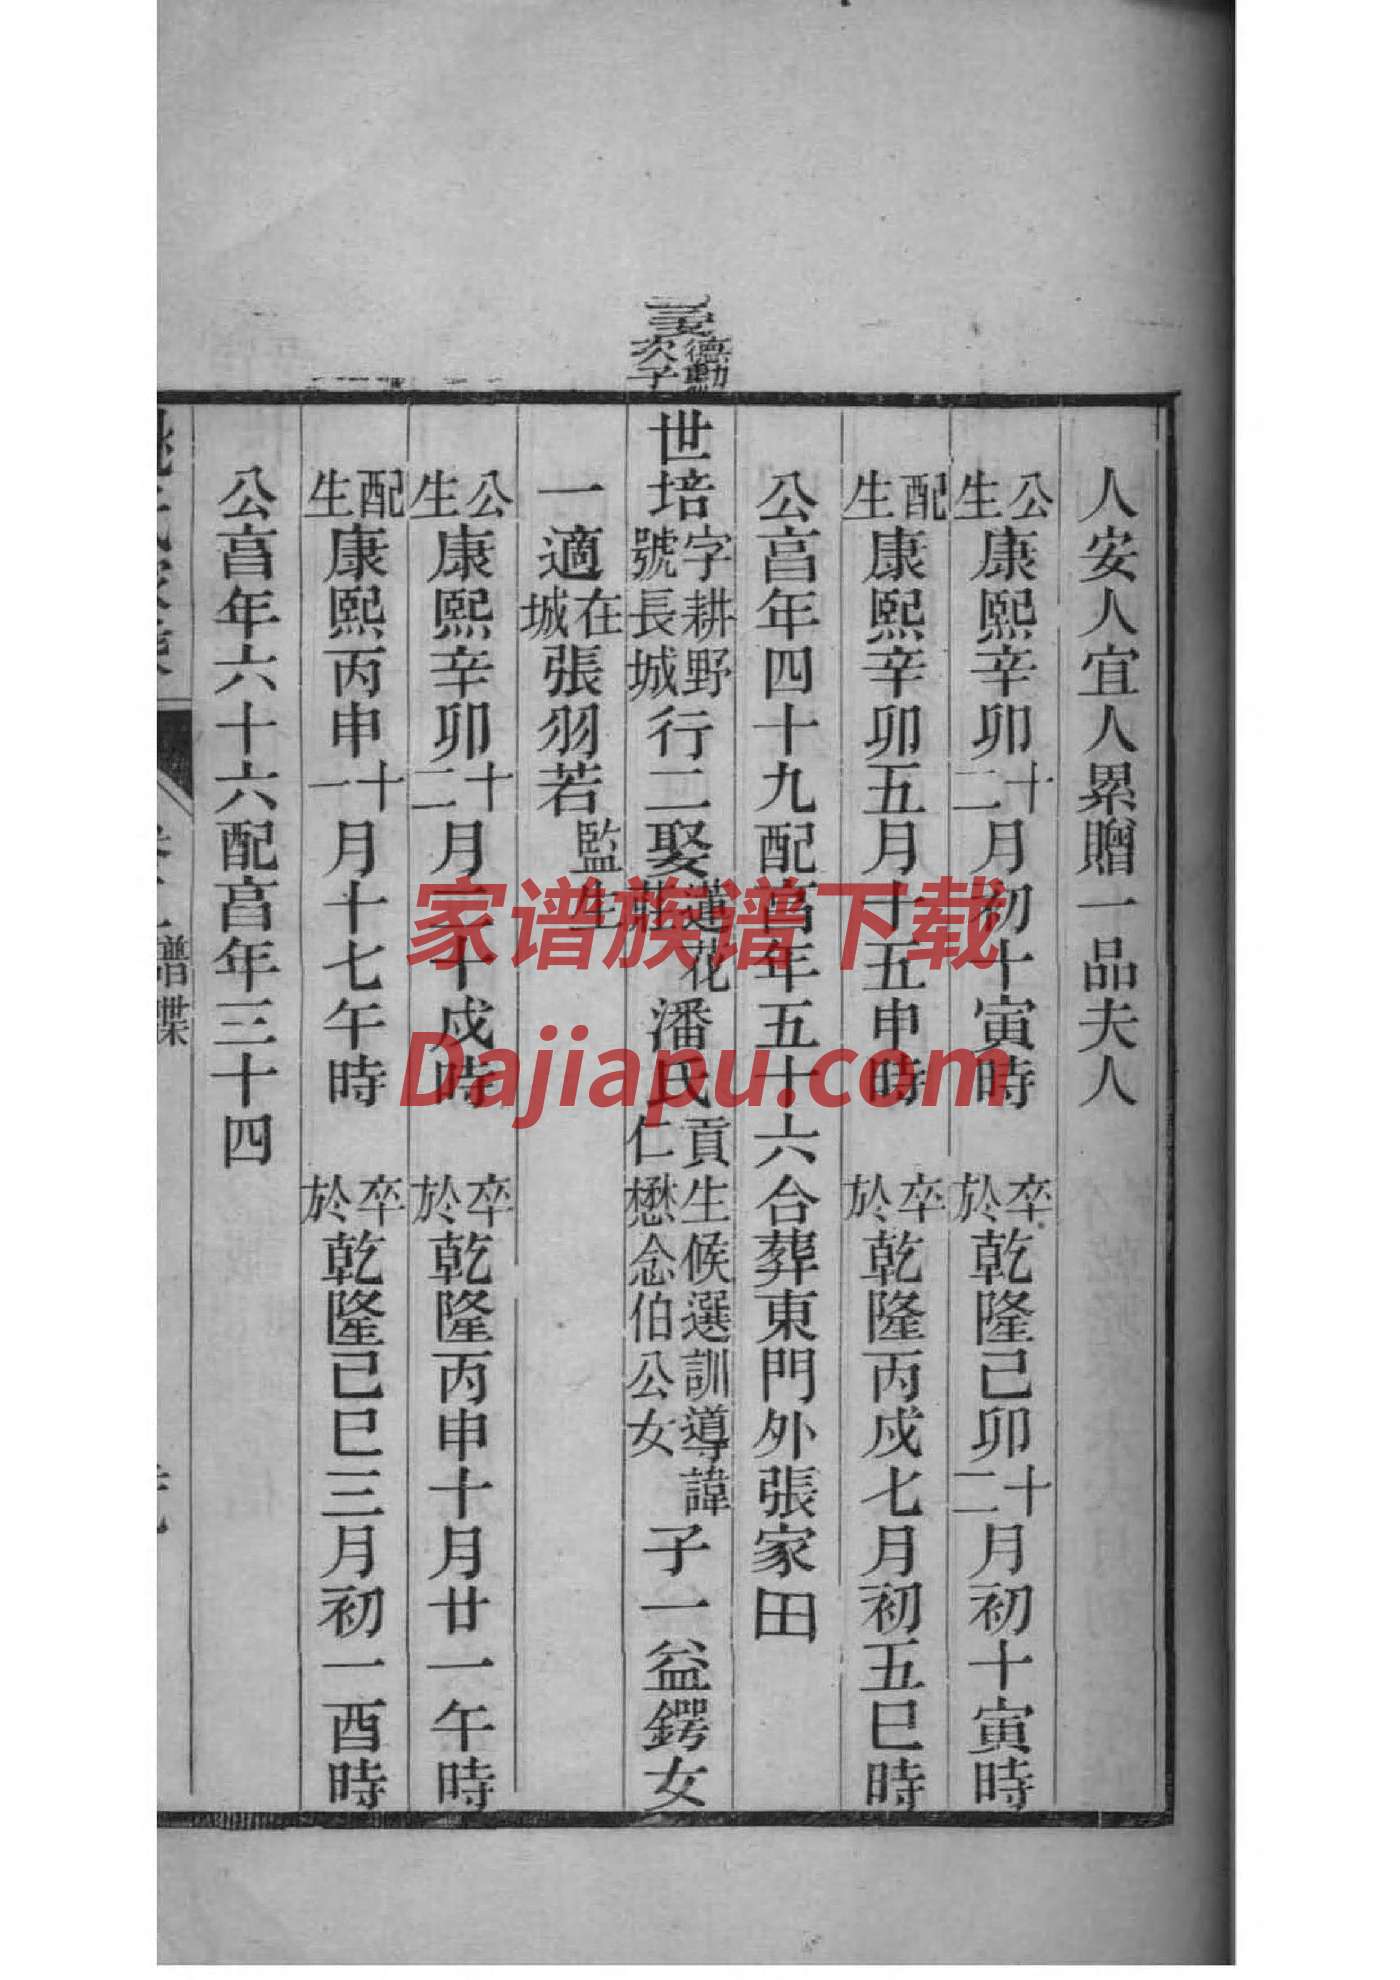 人安人宜人累贈一品夫人
公生康熙辛卯十二月初十寅時　卒於乾隆己卯十二月初十寅時
配生康熙辛卯五月十五申時　卒於乾隆丙戍七月初五巳時
公亯年四十九配亯年五十六合葬東門外張家田
德勳次子
世培字耕野號長城行二娶蓮花莊潘氏貢生候選訓導諱仁懋念伯公女子一益鍔女
一適在城張羽若監生
公生康熙辛卯十二月二十戍時　卒於乾隆丙申十月廿一午時
配生康熙丙申十一月十七午時　卒於乾隆己巳三月初一酉時
公亯年六十六配亯年三十四
譜牒
家谱族谱下载
Dajiapu.com